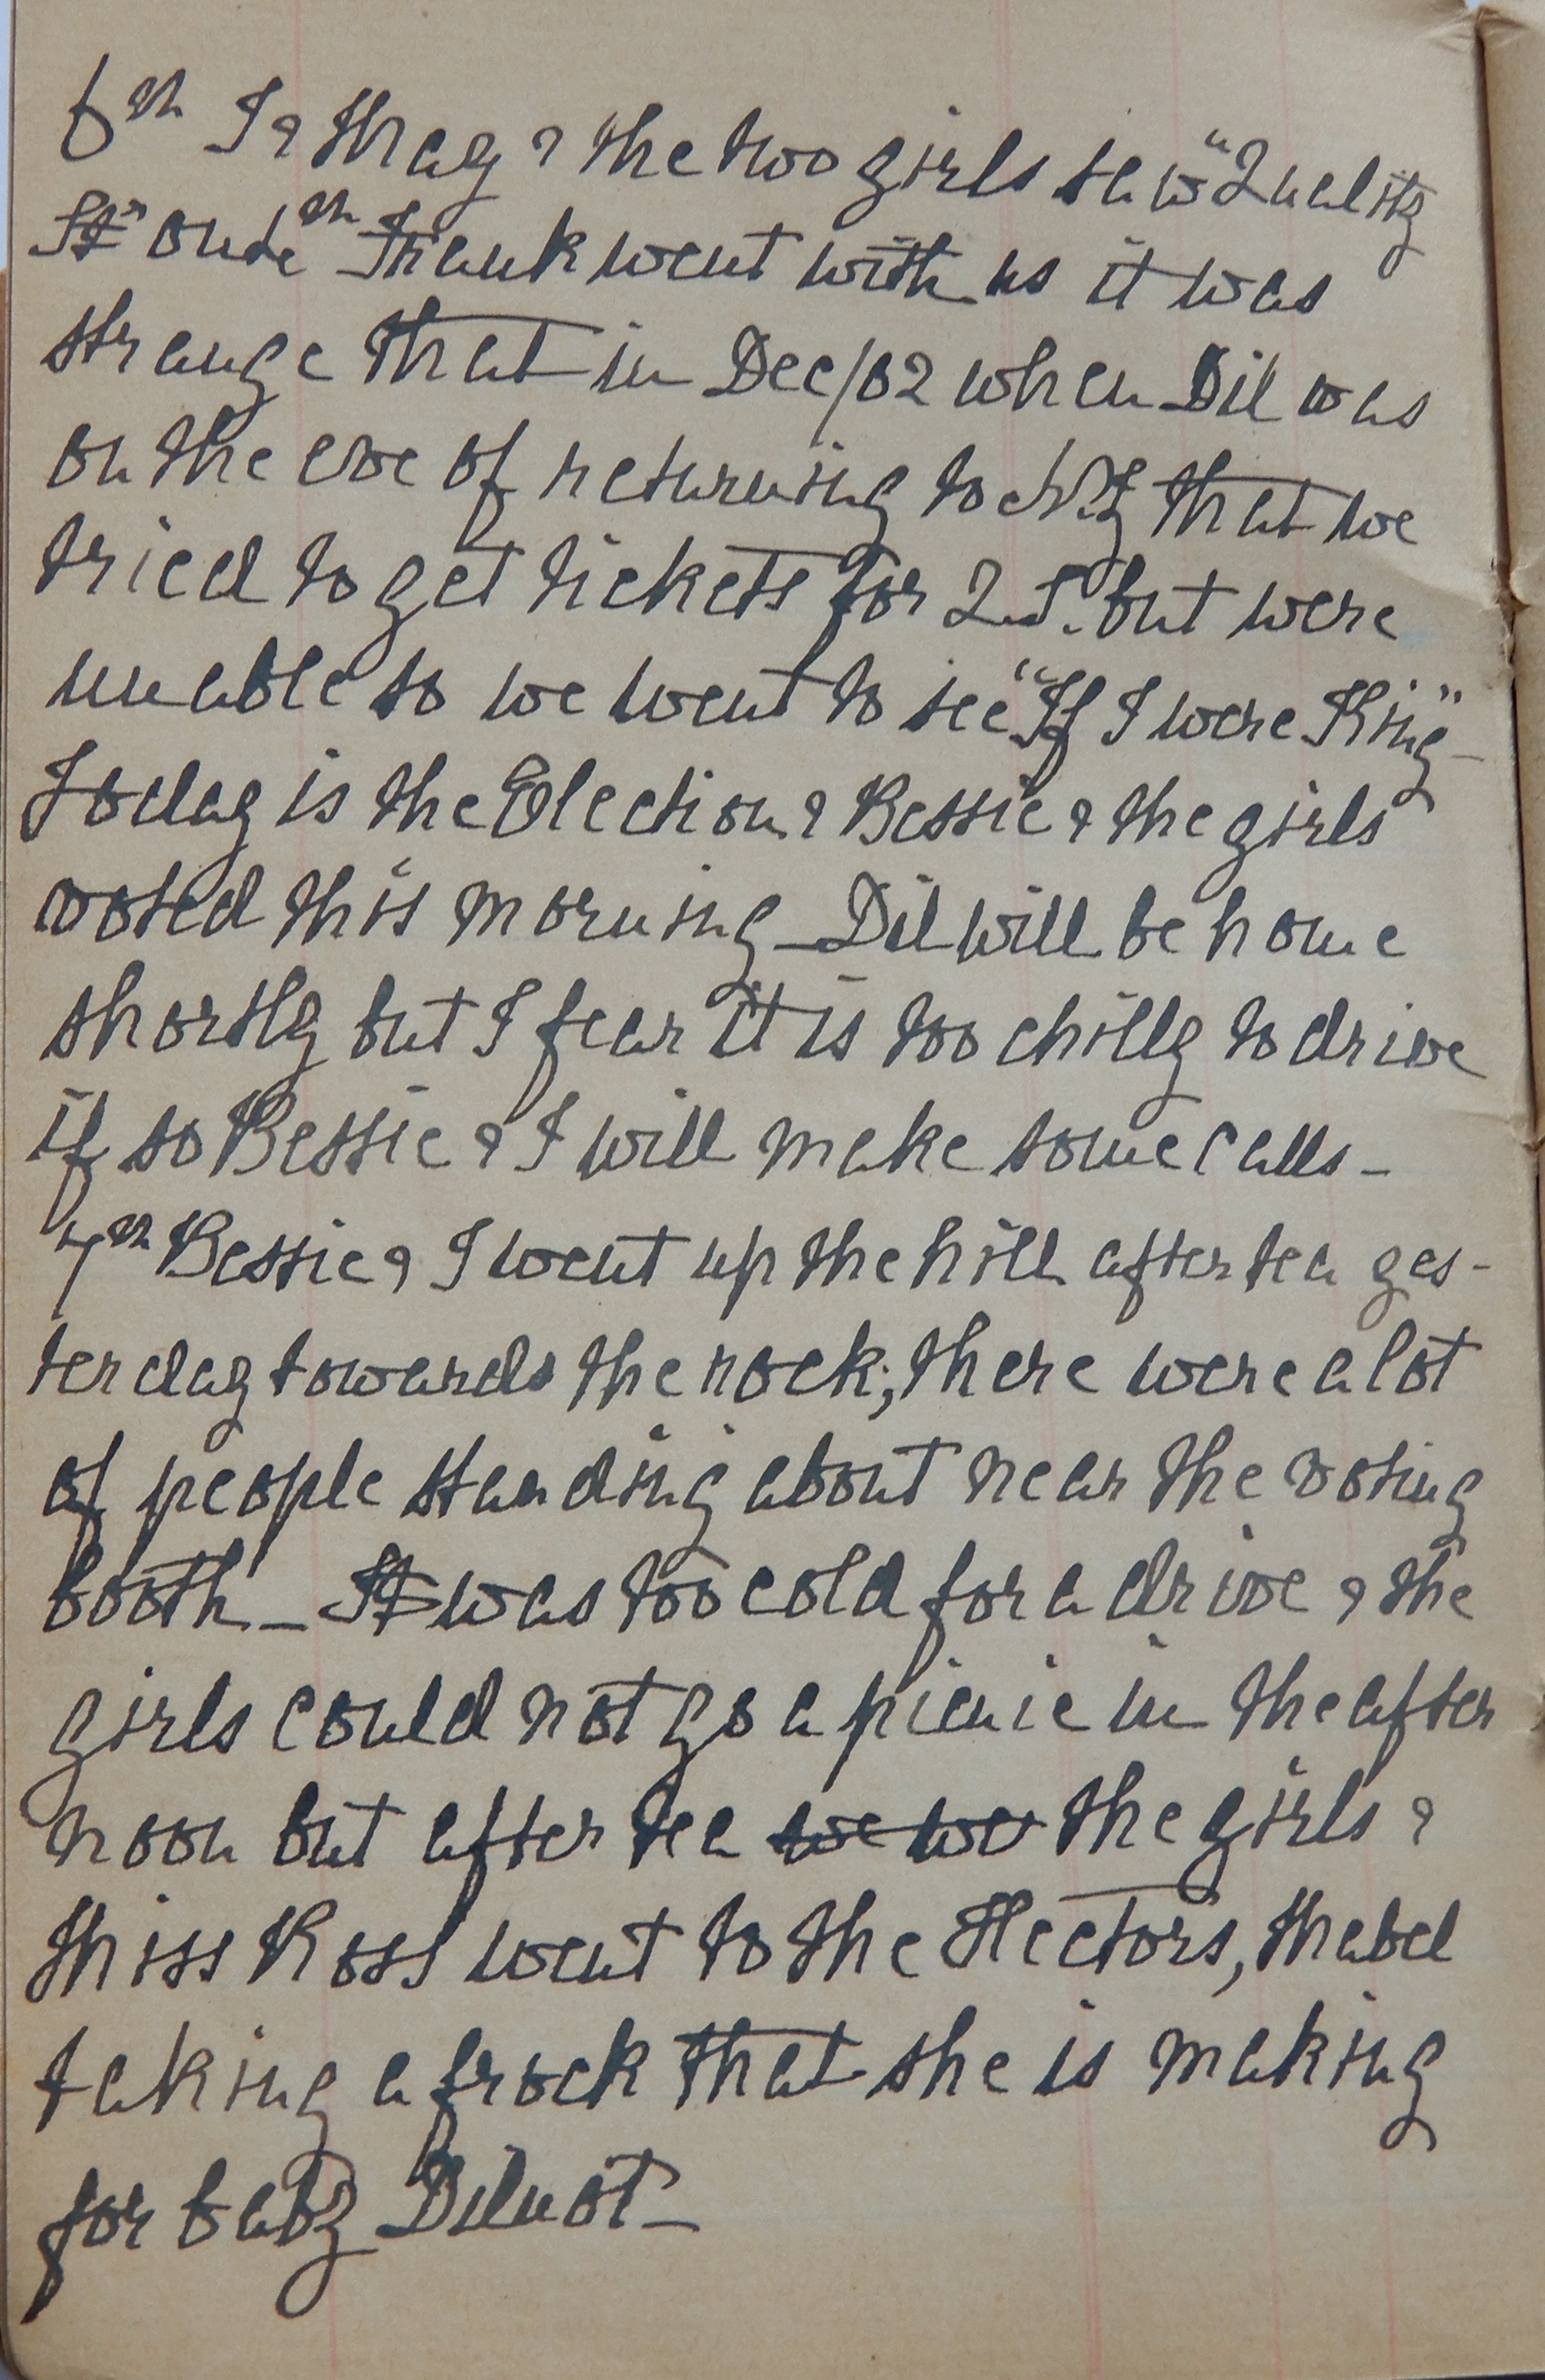 6th I & May & the two girls saw "Quality
St" on the 4th Frank went with us it was
strange that in Dec/02 when Dil was
on the eve of returning to N.Z that we
tried to get tickets for Q.S. but were
unable so we went to see "If I were King" -
Today is the Election & Bessie & the girls
voted this morning - Dil will be home
shortly but I fear it is too chilly to drive
if so Bessie & I will make some calls -
7th Bessie & I went up the hill after tea yes-
terday towards the rock; there were a lot
of people standing about near the voting
booth - It was too cold for a drive & the
girls could not go a picnic in the after
noon but after tea we we the girls &
Miss Ross went to the Hectors, Mabel
taking a frock that she is making
for baby Dilnot -